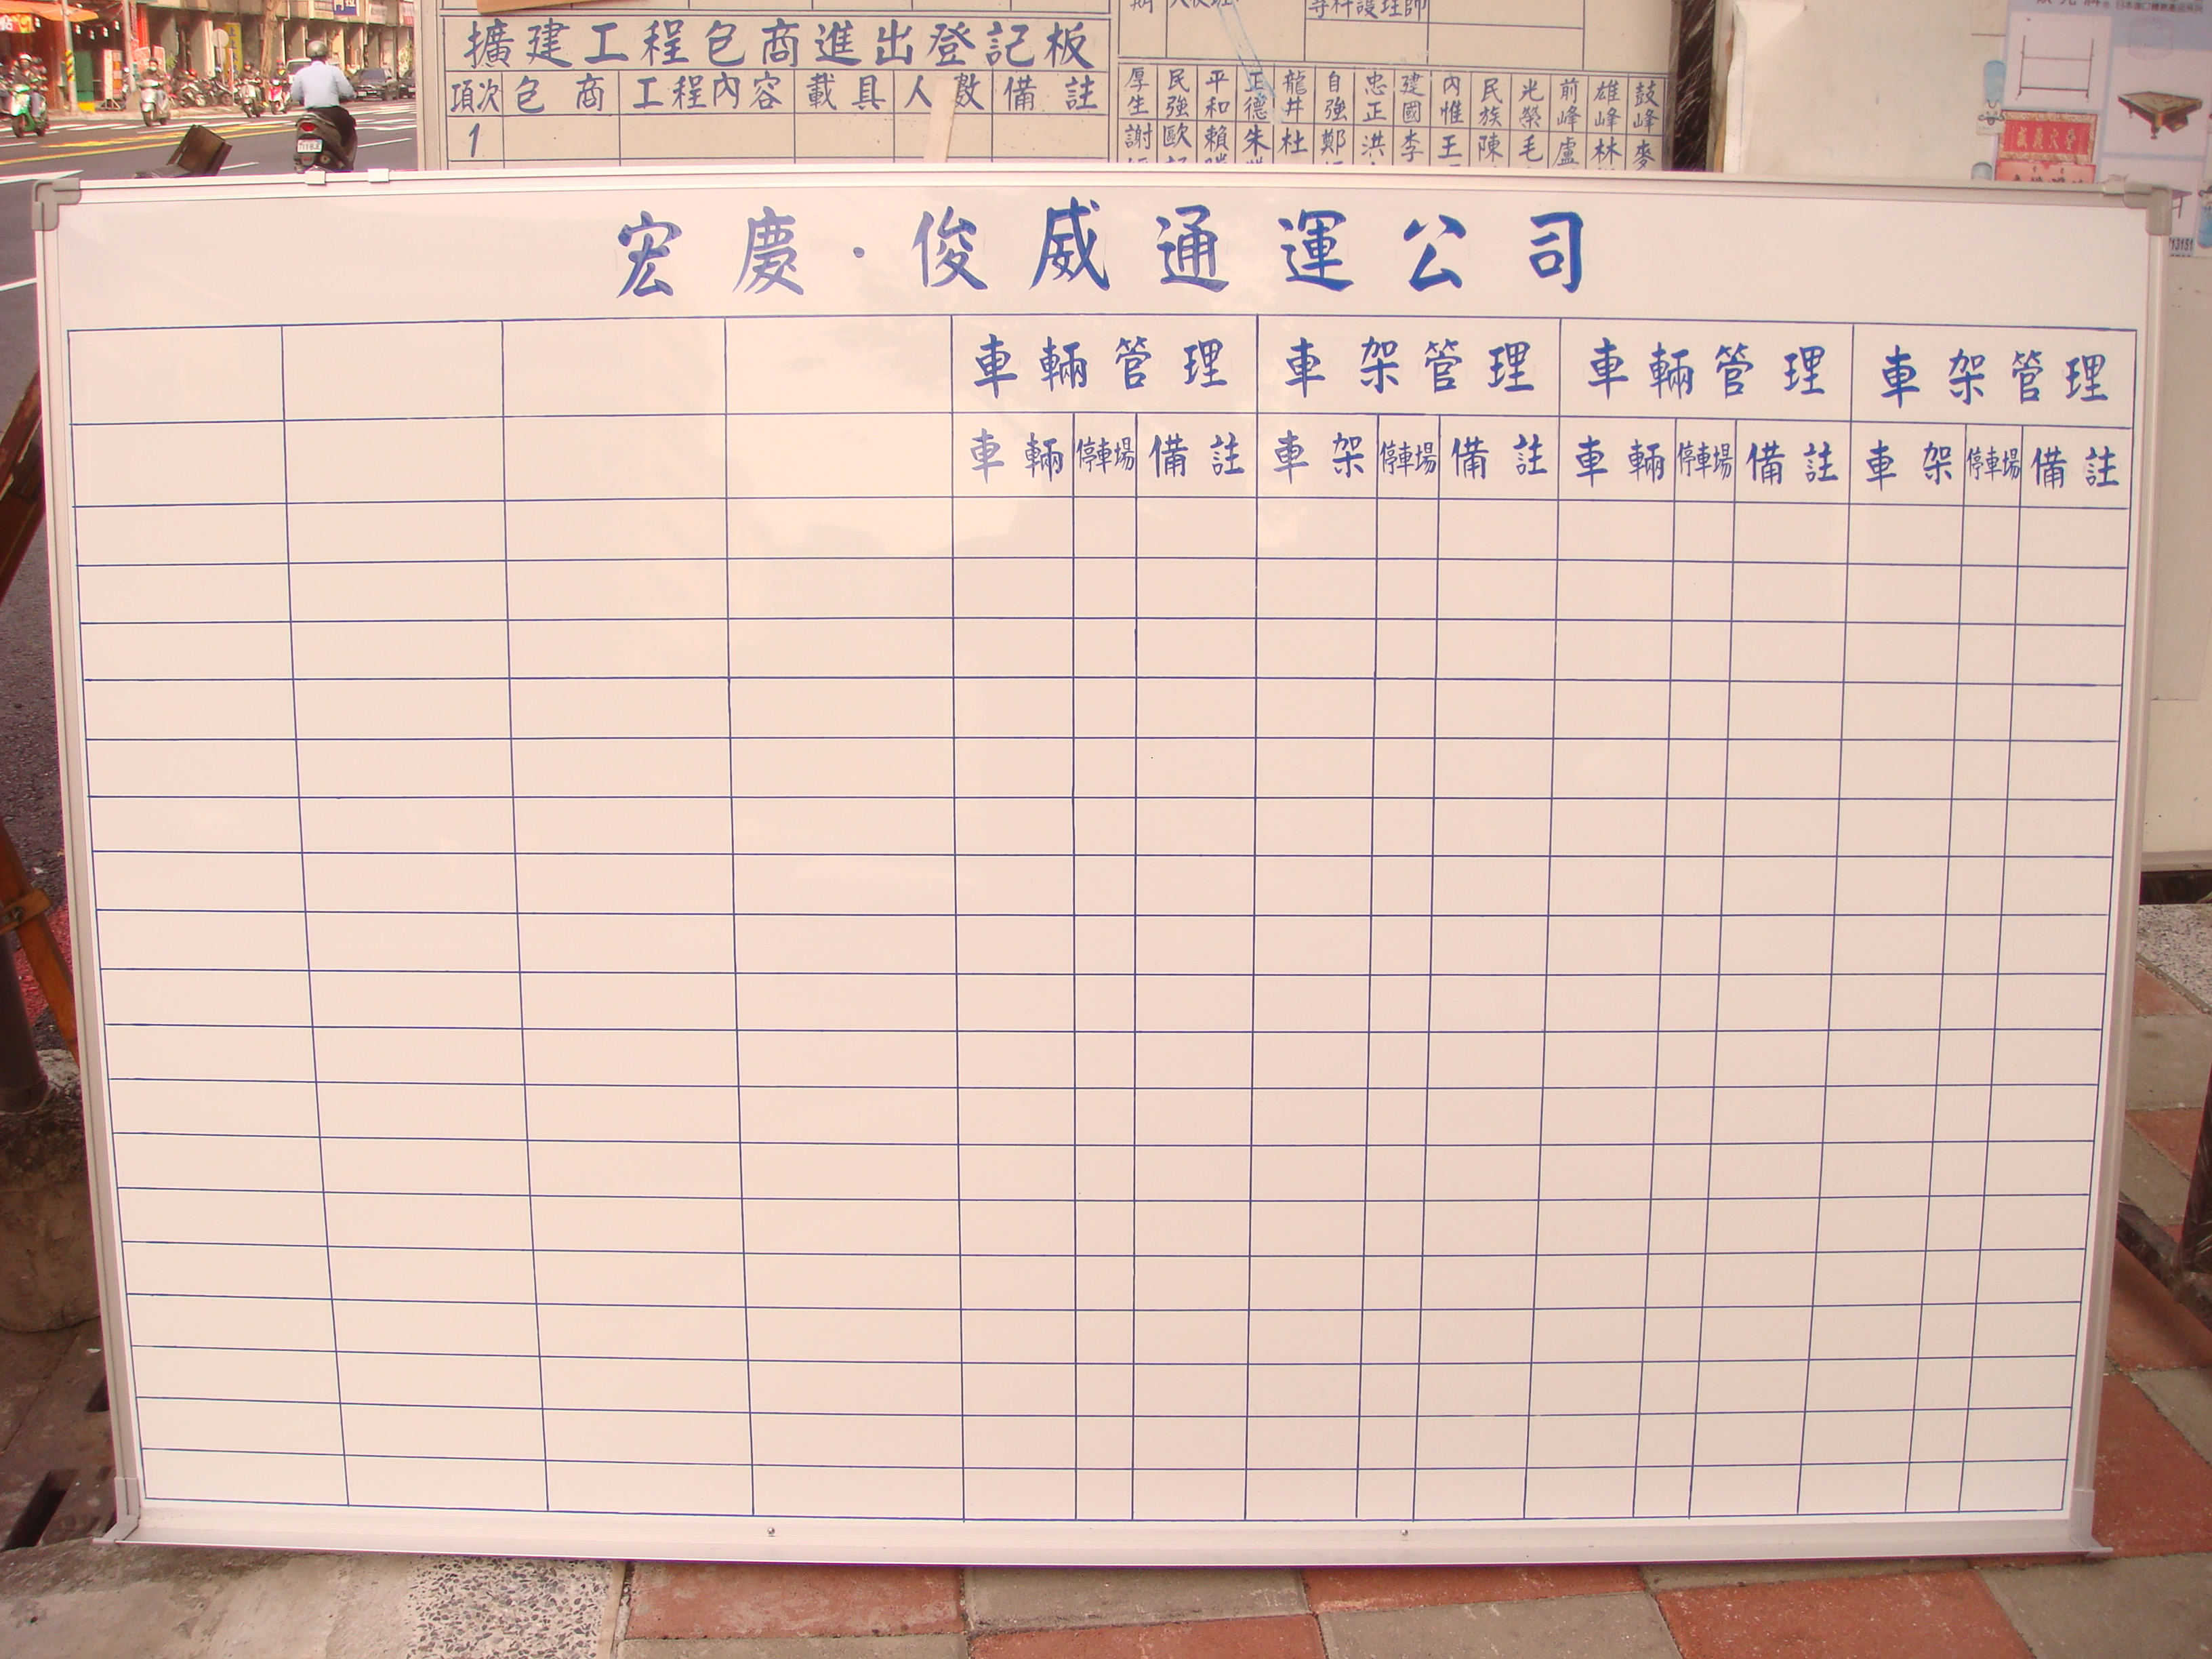 擴建工程包商進出登記板
項次 包商 工程內容 載具 人數 備註
1
專科護理師
厚生 民強 平和 正德 龍井 自強 忠正 建國 內惟 民族 光榮 前峰 雄峰 鼓峰
謝 歐 賴 朱 杜 鄭 洪 李 王 陳 毛 盧 林 麥
宏慶·俊威通運公司
車輛管理 車架管理 車輛管理 車架管理
車輛 停車場 備註 車架 停車場 備註 車輛 停車場 備註 車架 停車場 備註